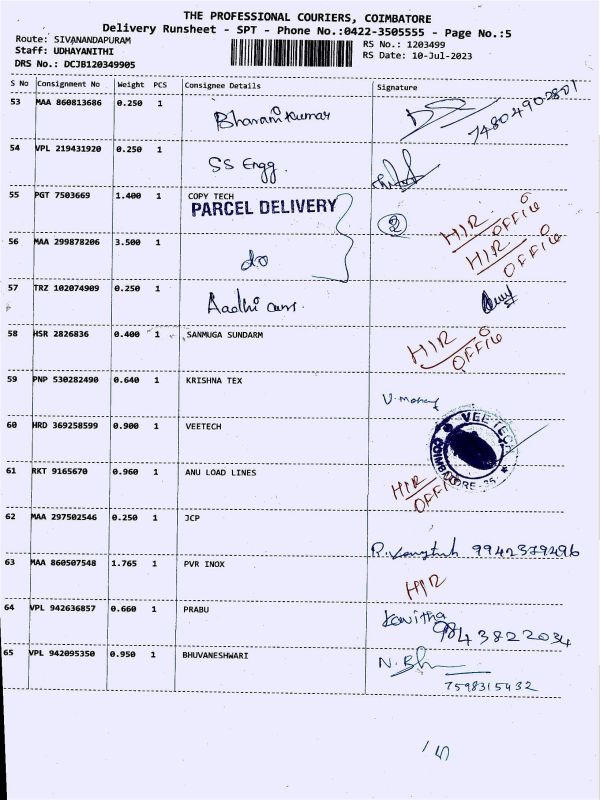 THE PROFESSIONAL COURIERS, COIMBATORE
Delivery Runsheet - SPT - Phone No.:0422-3505555 - Page No.:5
Route: SIVANANDAPURAM
Staff: UDHAYANITHI
DRS No.: DCJB120349905
RS No.: 1203499
RS Date: 10-Jul-2023
S No Consignment No Weight PCS Consignee Details Signature
53 MAA 860813686 0.250 1 Bharani Kumar 74804902801
54 VPL 219431920 0.250 1 SS Engg.
55 PGT 7503669 1.400 1 COPY TECH
PARCEL DELIVERY 2 HIR OFFICE
56 MAA 299878206 3.500 1 do HIR OFFICE
57 TRZ 102074909 0.250 1 Aadhi cars.
58 HSR 2826836 0.400 1 SANMUGA SUNDARM HIR OFFICE
59 PNP 530282490 0.640 1 KRISHNA TEX
60 HRD 369258599 0.900 1 VEETECH VEE TECH COIMBATORE-35
61 RKT 9165670 0.960 1 ANU LOAD LINES HIR OFFICE
62 MAA 297502546 0.250 1 JCP 9942379296
63 MAA 860507548 1.765 1 PVR INOX HIR
64 VPL 942636857 0.660 1 PRABU Kavitha 9843822034
65 VPL 942095350 0.950 1 BHUVANESHWARI N.Bh 7598315432